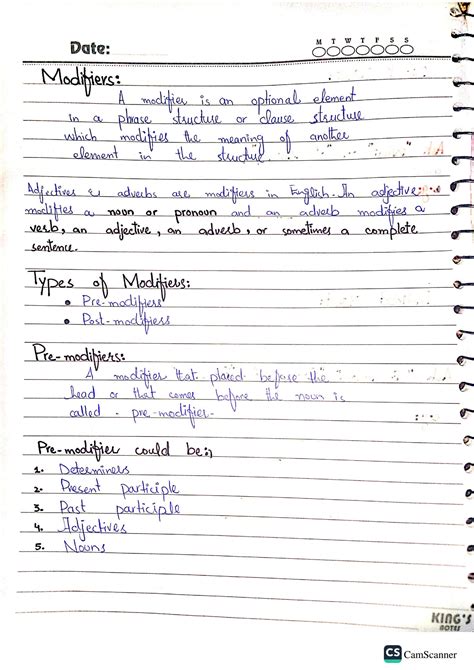 Date:
M T W T F S S
Modifiers:
A modifier is an optional element
in a phrase structure or clause structure
which modifies the meaning of another
element in the structure.
Adjectives & adverbs are modifiers in English. An adjective
modifies a noun or pronoun and an adverb modifies a
verb, an adjective, an adverb, or sometimes a complete
sentence.
Types of Modifiers:
• Pre-modifiers
• Post-modifiers
Pre-modifiers:
A modifier that placed before the
head or that comes before the noun is
called - pre-modifier-
Pre-modifier could be:,
1. Determiners
2. Present participle
3. Past participle
4. Adjectives
5. Nouns
KING'S
NOTES
CS CamScanner